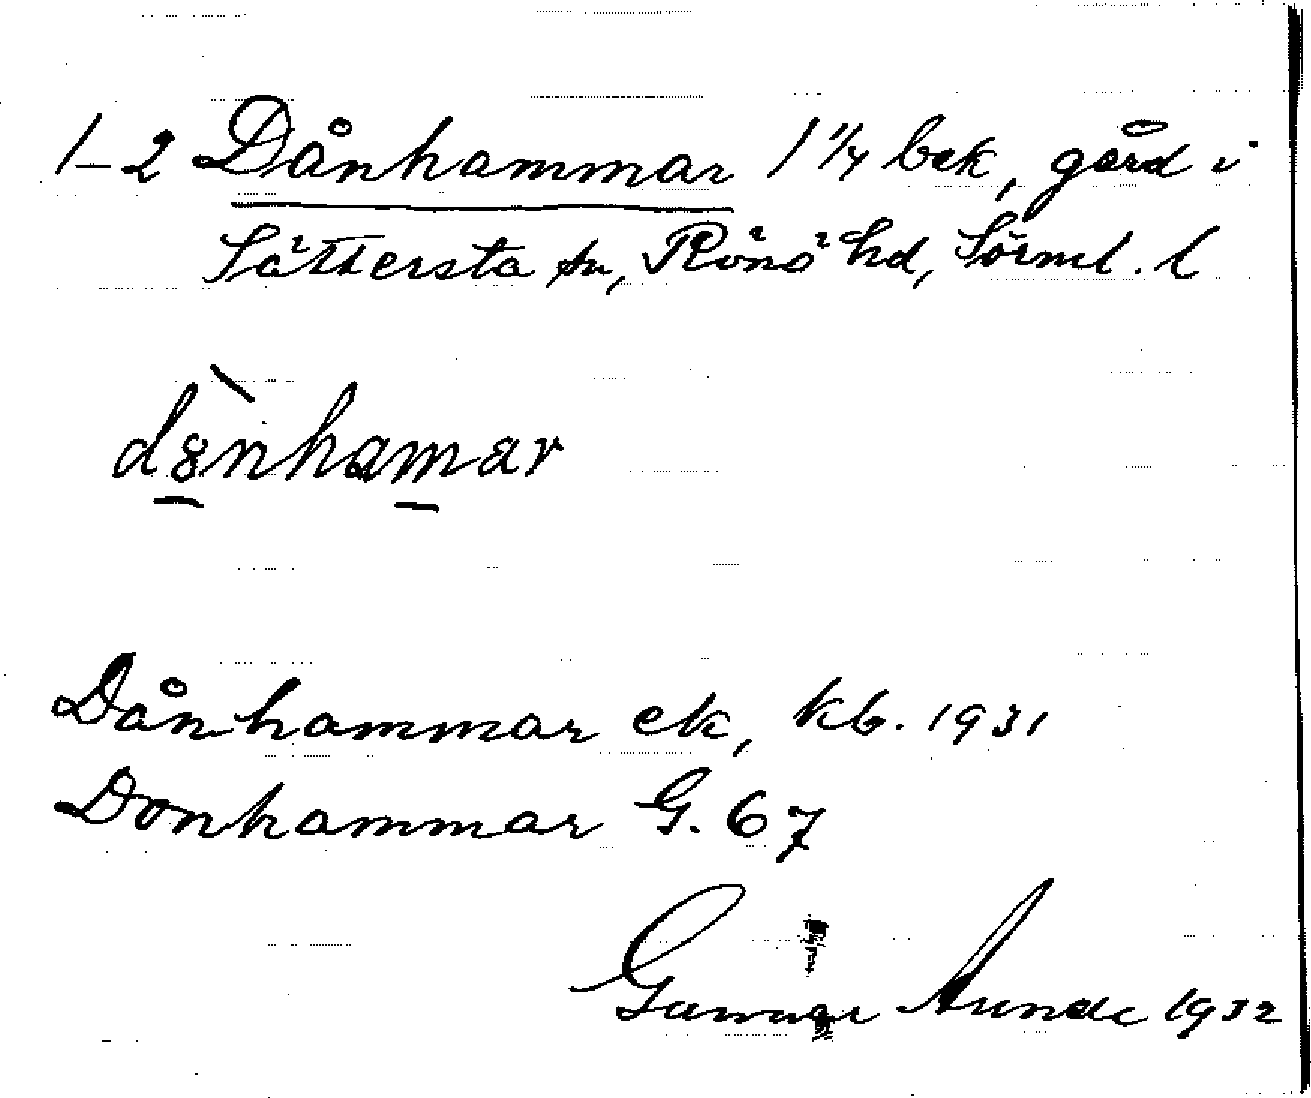 1-2 Dånhammar 1 1/4 bek, gård i
Sättersta sn, Rönö hd, Sörml. l
dònhamar
Dånhammar ek, kb. 1931
Donhammar G. 67
Gunnar Aunde 1932